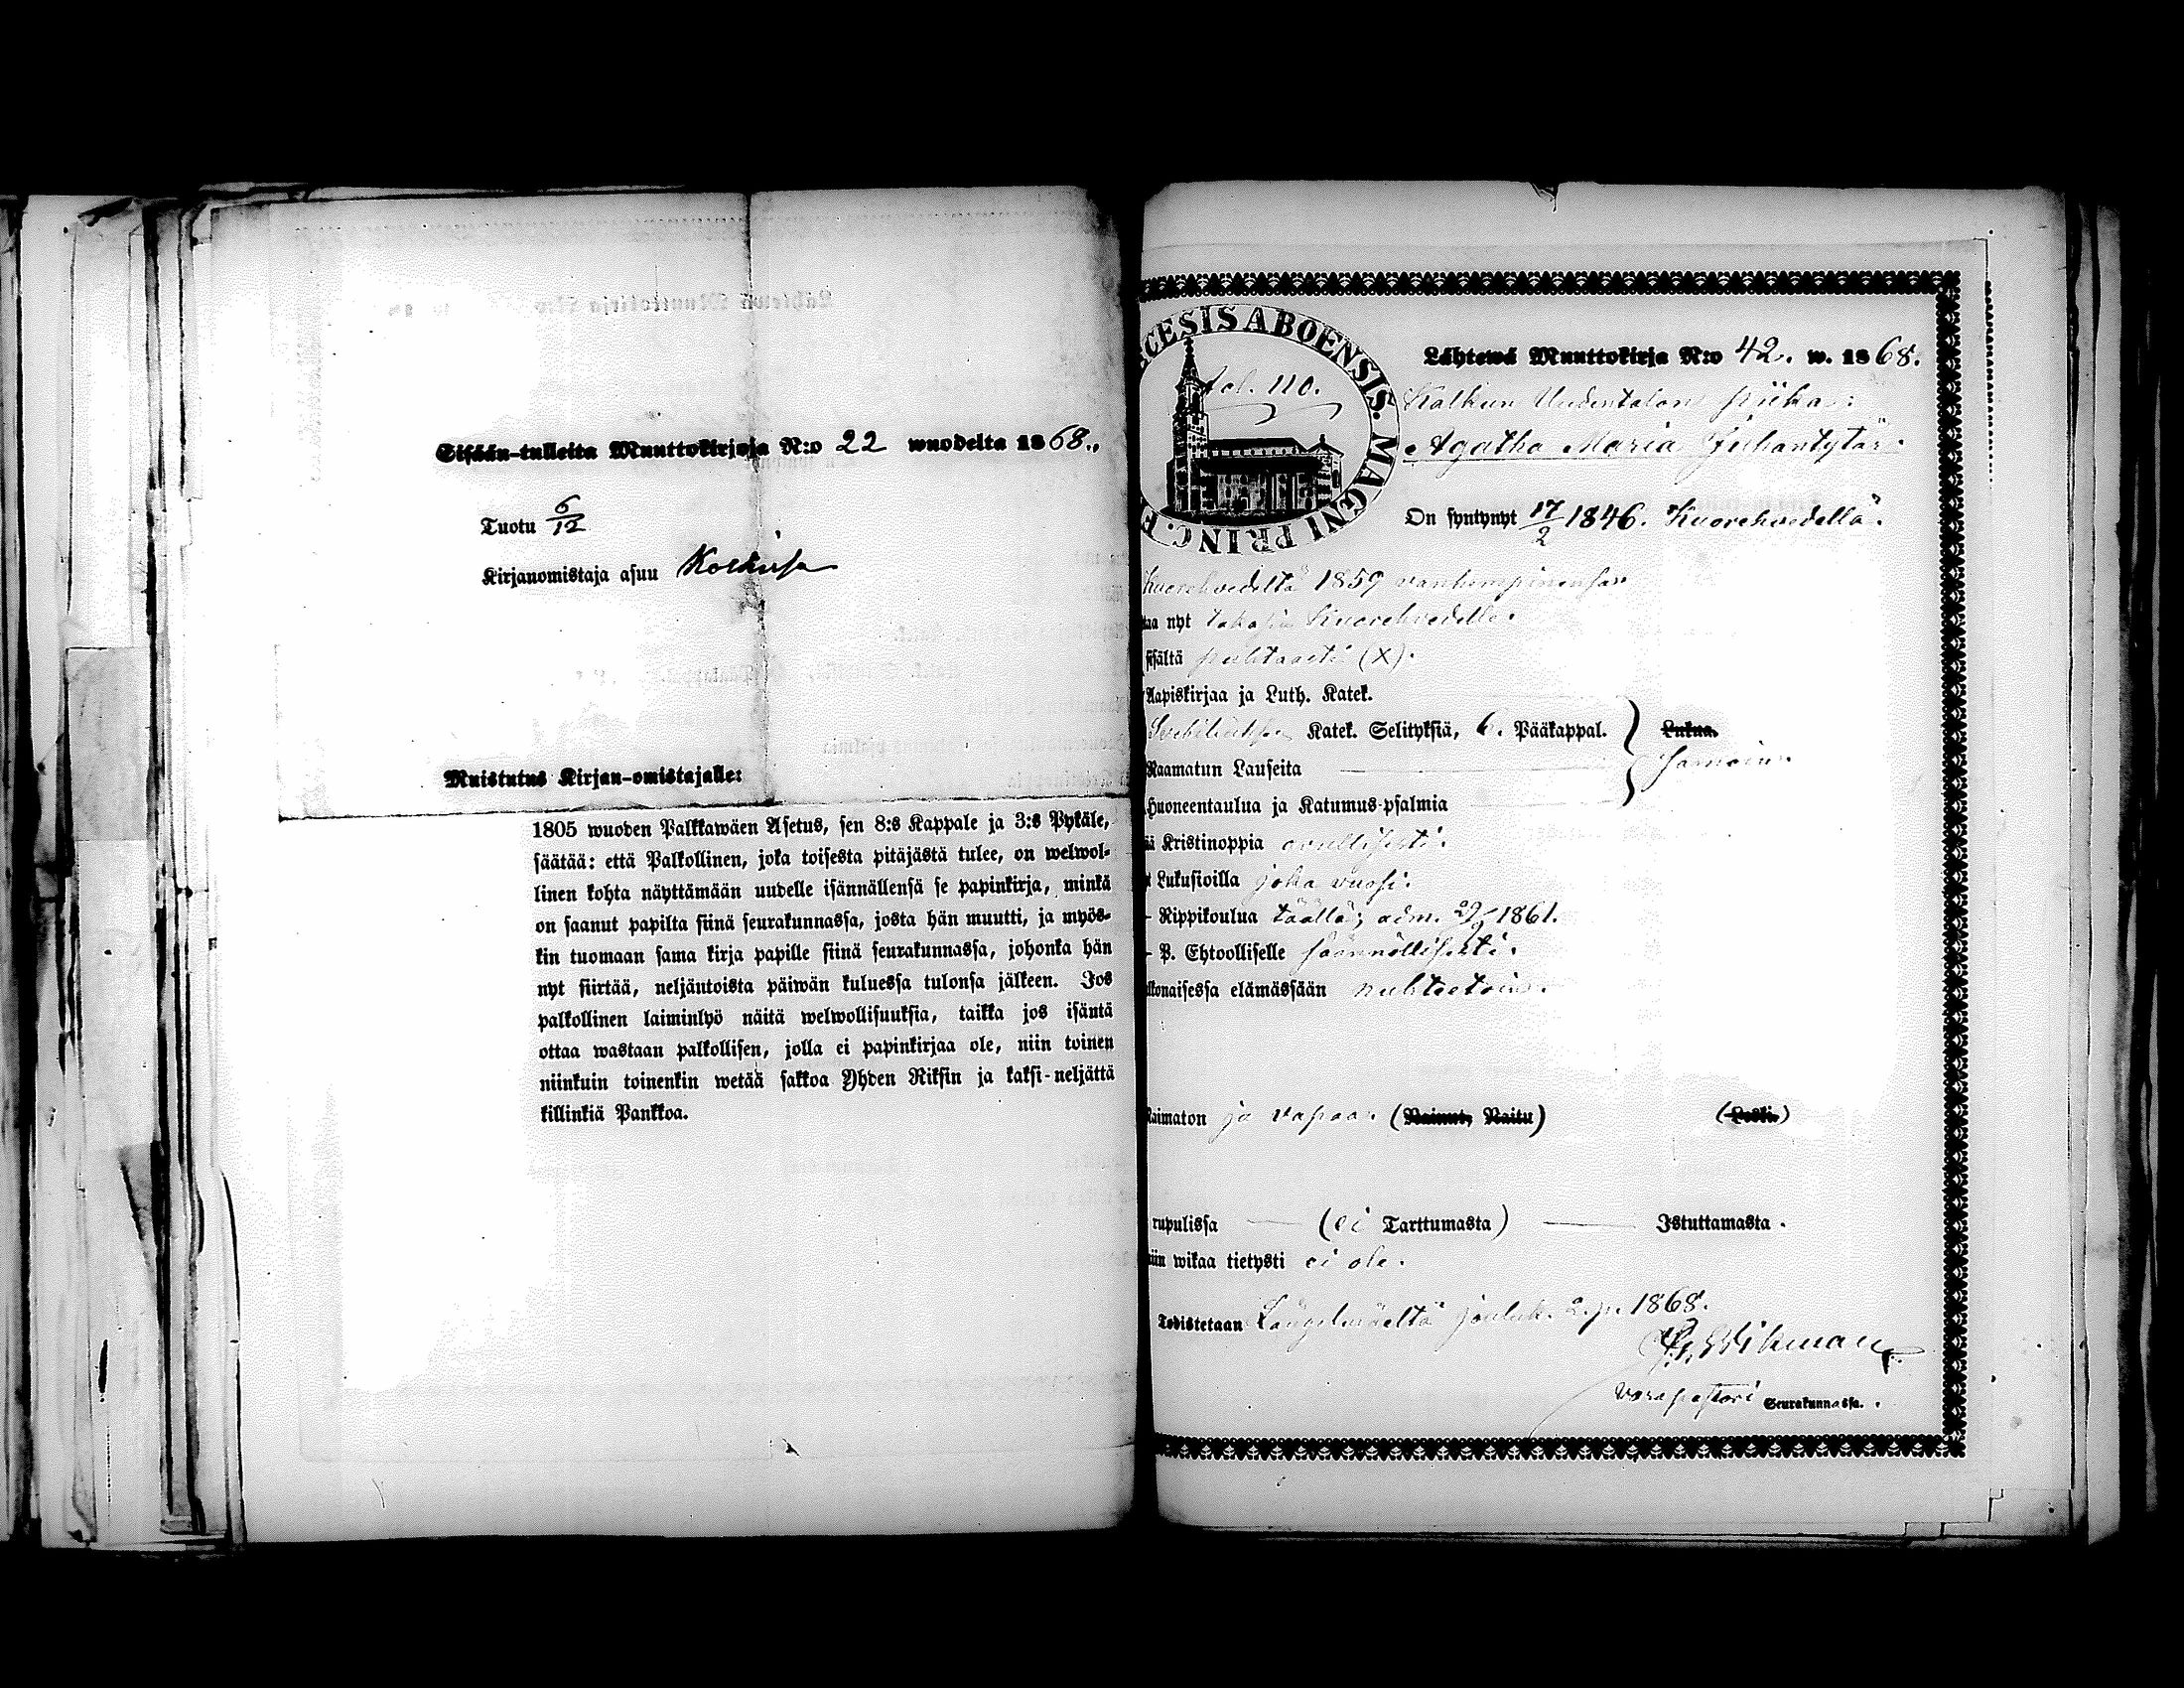 Sisään-tulleita Muuttokirjoja N:o 22 wuodelta 1868.
Tuotu 6/12
Kirjanomistaja asuu
Muistutus Kirjan-omistajalle:
1805 wuoden Palkkawäen Asetus, sen 8:s Kappale ja 3:s Pykäle,
säätää: että Palkollinen, joka toisesta pitäjästä tulee, on welwol-
linen kohta näyttämään uudelle isännällensä se papinkirja, minkä
on saanut papilta siinä seurakunnassa, josta hän muutti, ja myös-
kin tuomaan sama kirja papille siinä seurakunnassa, johonka hän
nyt siirtää, neljäntoista päiwän kuluessa tulonsa jälkeen. Jos
palkollinen laiminlyö näitä welwollisuuksia, taikka jos isäntä
ottaa wastaan palkollisen, jolla ei papinkirjaa ole, niin toinen
niinkuin toinenkin wetää sakkoa Yhden Riksin ja kaksi-neljättä
killinkiä Pankkoa.
ECESIS ABOENSIS. MAGNI PRINC. F
fol. 110.
Lähtewä Muuttokirja N:o 42. w. 1868.
Uudentalon piika
Agatha Maria Juhantytär.
On syntynyt 17/2 1846. Kuorehvedellä.
Kuorehvedeltä 1859 vanhempinensa
aa nyt takasin Kuorehvedelle.
sisältä puhtaasti (X).
Aapiskirjaa ja Luth. Katek.
Svebiliuksen Katek. Selityksiä, 6. Pääkappal. Lukua.
Raamatun Lauseita samoin.
Huoneentaulua ja Katumus-psalmia
ä Kristinoppia avullisesti.
t Lukusioilla joka vuosi.
- Rippikoulua täällä; adm. 1861.
- P. Ehtoolliselle säännöllisesti.
lkonaisessa elämässään nuhteetoin.
Naimaton ja vapaa. (Nainut, Naitu) (Leski)
rupulissa (ei Tarttumasta) Istuttamasta.
iin wikaa tietysti ei ole.
Todistetaan Längelmäeltä jouluk. 2. p. 1868.
Wikman
varapastori Seurakunnassa.